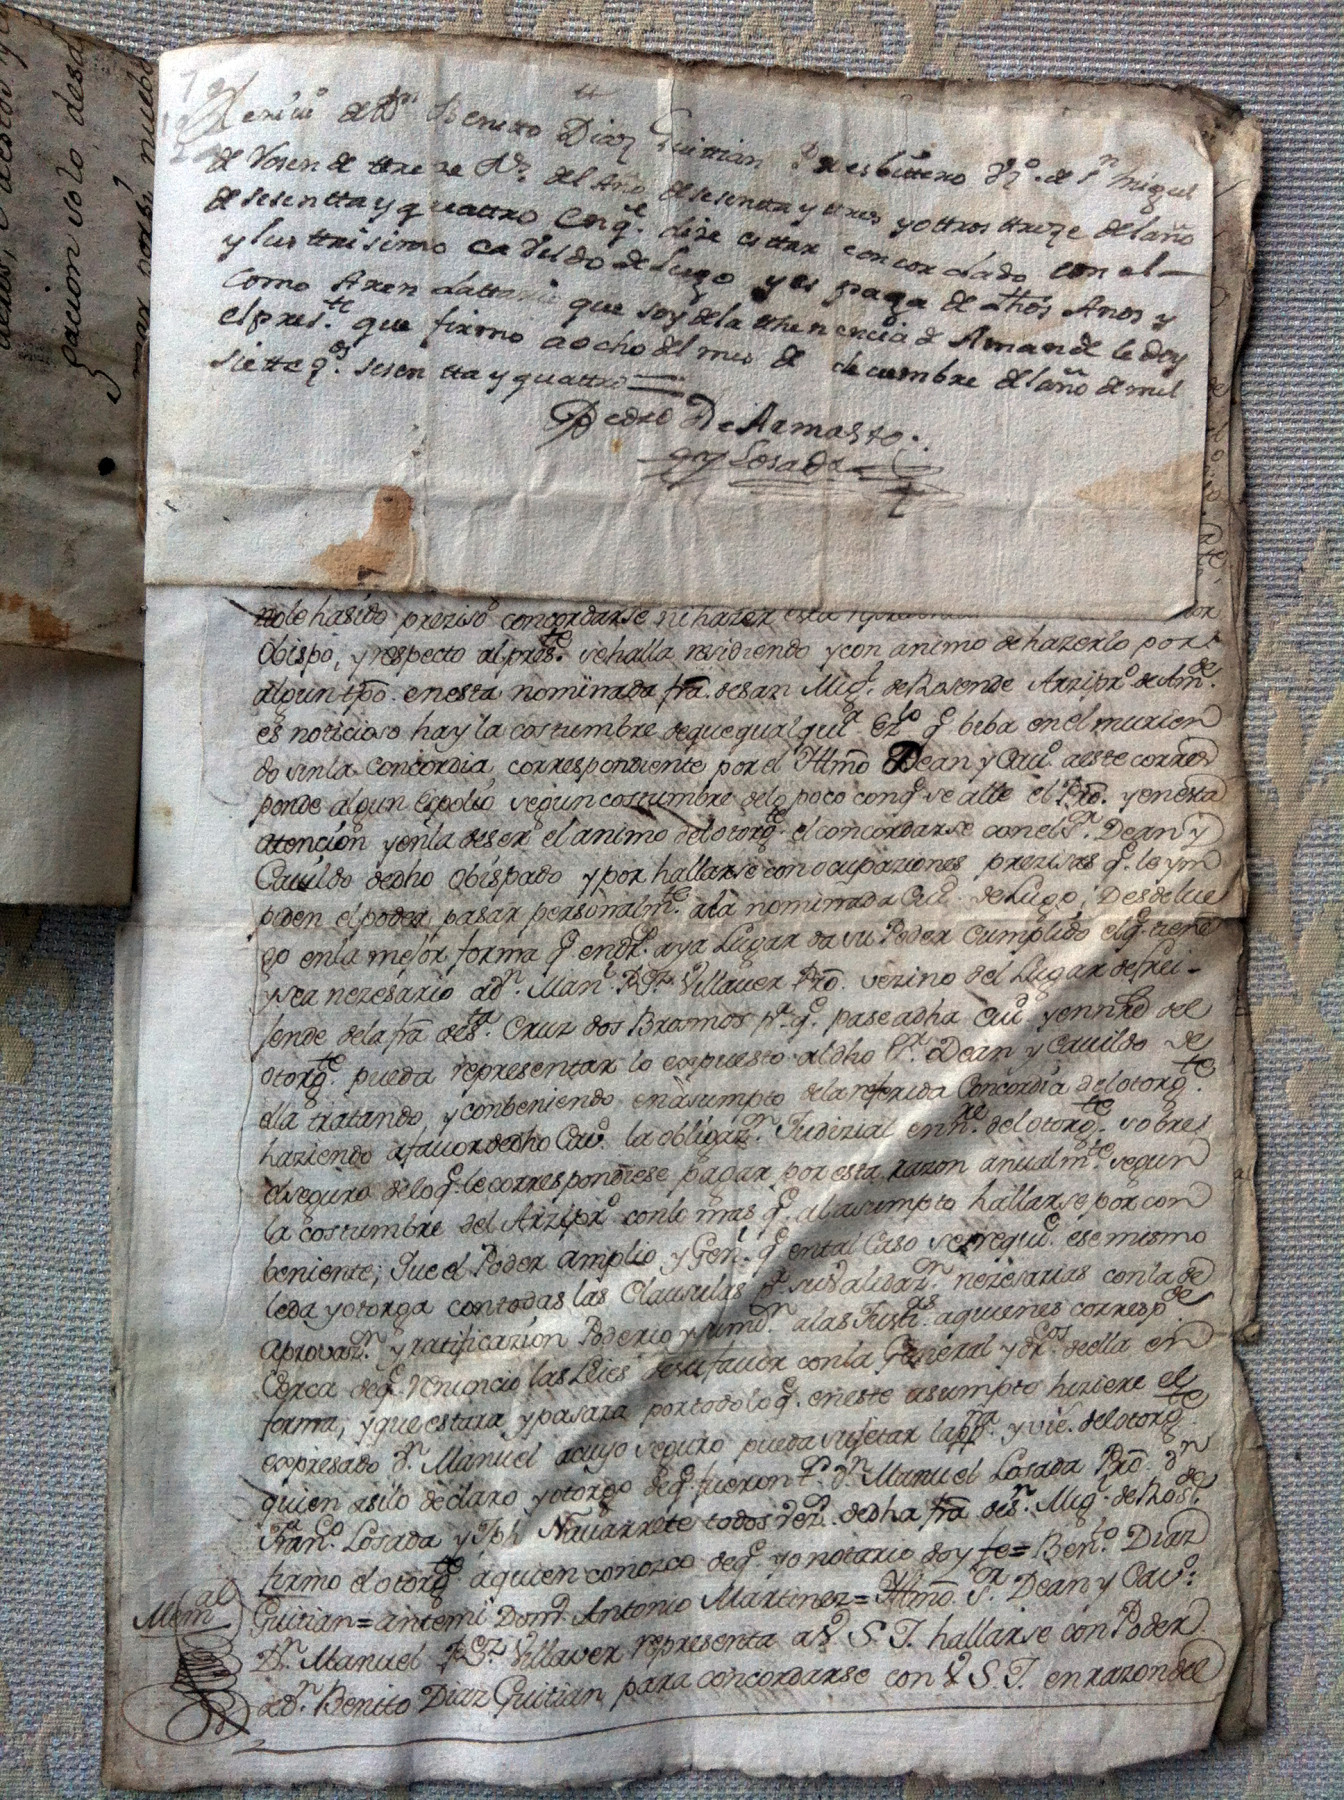 gacion solo, desa
Reciui de Dn. Benitto Diaz Guittian Presbittero Vo. de Sn. Miguel
de Rosen de ttreze Rs. del Año de sesentta y ttres y ottros ttreze del año
de sesentta y quattro en q.e dize esttar concordado con el
yllusttrisimo Cavildo de Lugo y es paga de dhos Anos y
como Arendattario que soy de la thenencia de Amande le doy
el pres.te que firmo a ocho del mes de deciembre del año de mil
siette z.os sesentta y quattro =
Pedro De Armastto
y Losada
nole ha sido preziso concordarse ni hazer esta
Obispo, y respecto al pres.te se halla residiendo y con animo de hazerlo por
algun tpo. en esta nominada fra. de San Mig.l de Rosende Arzipr.o de Am.de
es noticioso hay la costumbre de que qualqui.a Ez.co q.e biba en el murien
do sin la Concordia correspondiente por el Illmo Dean y Cav.o a este corres
ponde algun Espolio segun costumbre de lo poco con q.e se alle el Pro. y en esta
atención y en la de ser el animo del otorg.te el concordarse con el Sr. Dean y
Cavildo de dho Obispado y por hallarse con ocupaziones prezisas q.e le ym
piden el poder pasar personalm.te a la nominada Ciu.d de Lugo; Desde lue
go en la mejor forma q.e en dr.o aya Lugar da su Poder Cumplido el q.e tiene
y sea nezesario a dn. Man.l Prz. Villaver Pro. vezino del Lugar de Frei-
sende de la fra de Sta. Cruz dos Brosmos p.a q.e pase a dha Ciu.d y en nre del
otorg.te pueda representar lo expuesto al dho Sr. Dean y Cavildo de
ella tratando, y conbeniendo en asumpto de la referida Concordia del otorg.te
haziendo a favor de dho Cav.o la obligaz.n Judizial en n.e del otorg.te sobre
el seguro de lo q.e le correspondiese pagar por esta razon anualm.te segun
la costumbre del Arzipr.o con lo mas q.e al asumpto hallarse por con
beniente; Que el Poder amplio y Gen.l q.e en tal Caso se requi.e ese mismo
le da y otorga con todas las Clausulas p.a su validaz.n nezesarias con la de
aprovaz.n y ratificazion Poderio y sumis.n a las Justi.as a quienes corresp.de
Cerca de q.e renuncio las Leies de su favor con la General y dr.os de ella en
forma; y que estara y pasara por todo lo q.e en este asumpto hiziere el
expresado dn. Manuel a cuyo seguro pueda sujetar la ppna. y vie.s del otorg.te
quien asi lo declaro y otorgo de q.e fueron t.os dn. Manuel Losada Pro. dn.
Fran.co Losada y Jph Navarrete todos vez.os de dha fra de Sn. Mig.l de Ros.de
firmo el otorg.te a quien conozco de q.e yo notario doy fe = Ben.to Diaz
Guitian = ante mi Dom.o Antonio Martinez = Illmo. Sr. Dean y Cav.o:
Mem.al
Dn. Manuel Prz. Villaver representa a V. S. I. hallarse con Poder
de dn. Benito Diaz Guitian para concordarse con V. S. I. en razon del